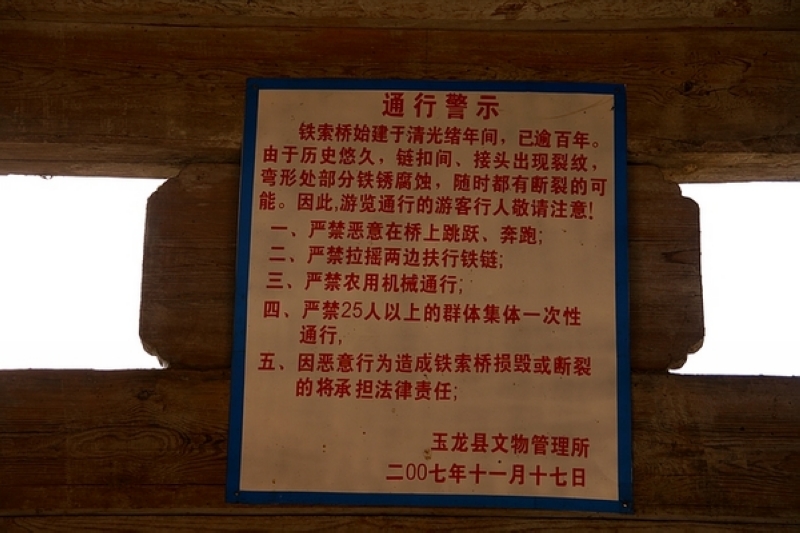 通行警示
铁索桥始建于清光绪年间，已逾百年。
由于历史悠久，链扣间、接头出现裂纹，
弯形处部分铁锈腐蚀，随时都有断裂的可
能。因此,游览通行的游客行人敬请注意!
一、严禁恶意在桥上跳跃、奔跑;
二、严禁拉摇两边扶行铁链;
三、严禁农用机械通行;
四、严禁25人以上的群体集体一次性
通行,
五、因恶意行为造成铁索桥损毁或断裂
的将承担法律责任;
玉龙县文物管理所
二00七年十一月十七日